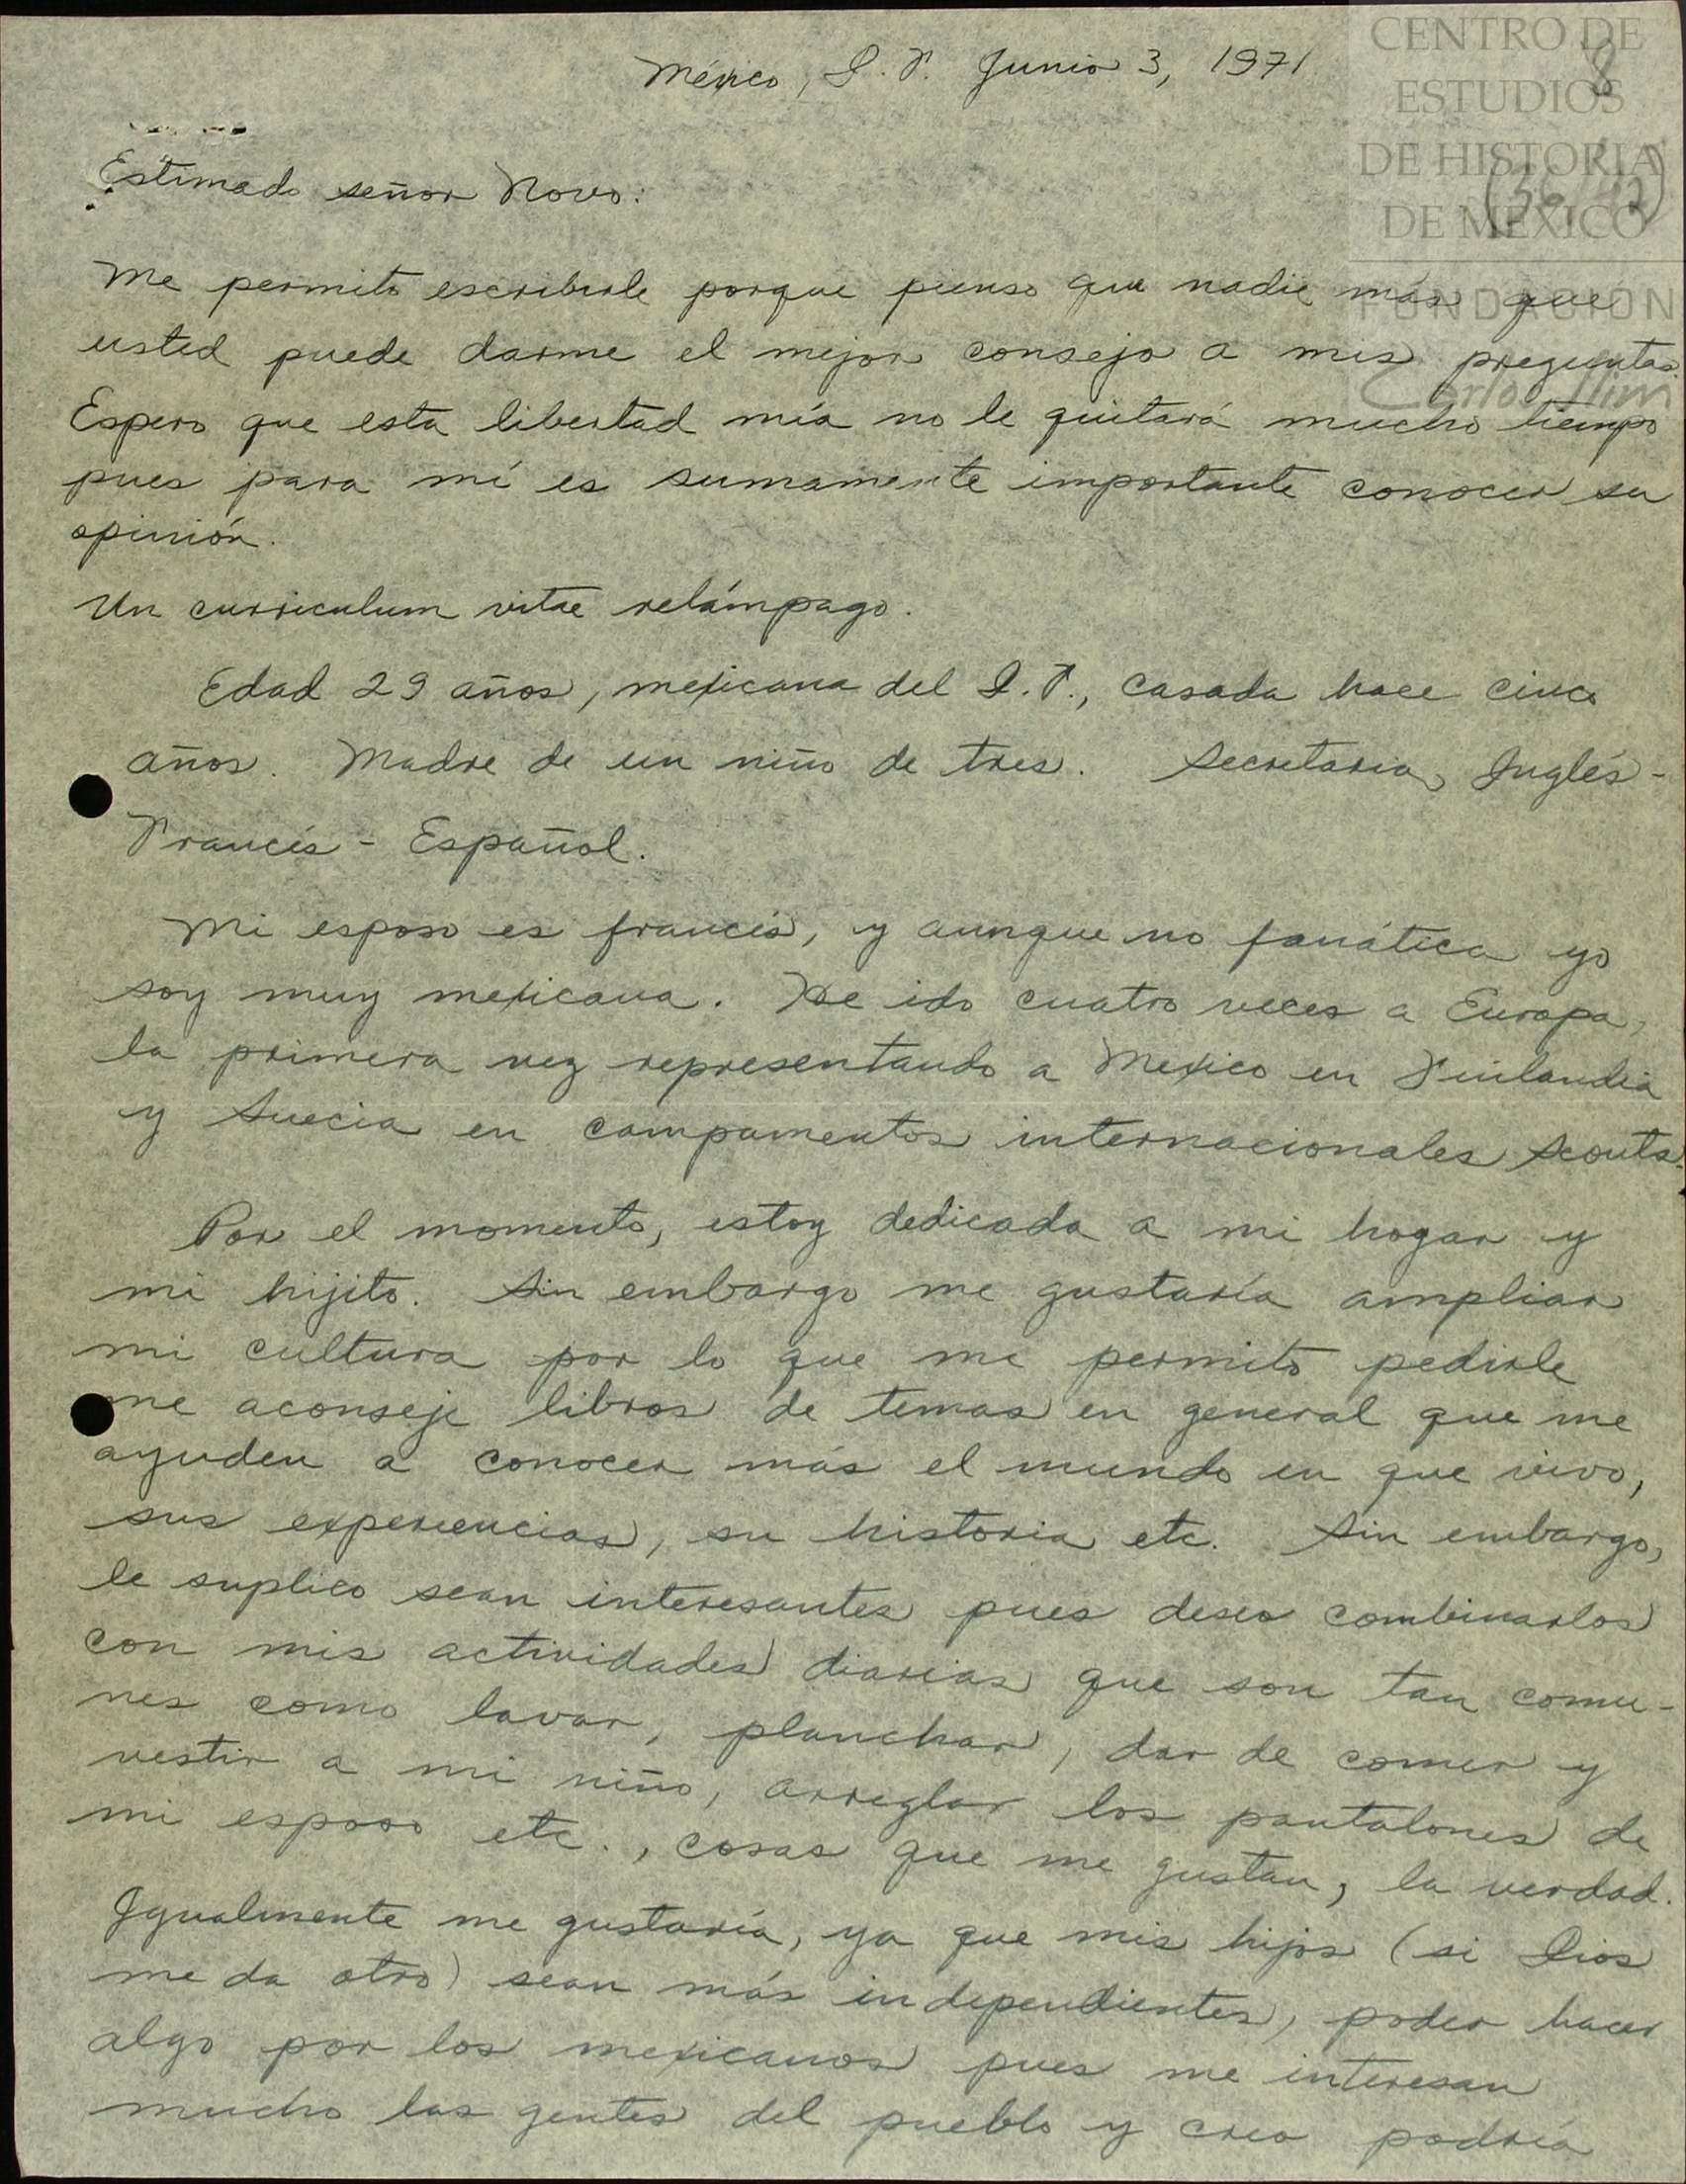 México, D.F. Junio 3, 1971
CENTRO DE
ESTUDIOS
DE HISTORIA
DE MÉXICO
FUNDACIÓN
Carlos Slim
8
Estimado señor Novo:
Me permito escribirle porque pienso que nadie más que
usted puede darme el mejor consejo a mis preguntas.
Espero que esta libertad mía no le quitará mucho tiempo
pues para mí es sumamente importante conocer su
opinión.
Un curriculum vitae relámpago.
Edad 29 años, mexicana del D.F., casada hace cinco
años. Madre de un niño de tres. Secretaria, Inglés-
Francés - Español.
Mi esposo es francés, y aunque no fanática yo
soy muy mexicana. He ido cuatro veces a Europa,
la primera vez representando a Mexico en Finlandia
y Suecia en campamentos internacionales scouts.
Por el momento, estoy dedicada a mi hogar y
mi hijito. Sin embargo me gustaría ampliar
mi cultura por lo que me permito pedirle
me aconseje libros de temas en general que me
ayuden a conocer más el mundo en que vivo,
sus experiencias, su historia etc. Sin embargo,
le suplico sean interesantes pues deseo combinarlos
con mis actividades diarias que son tan comu-
nes como lavar, planchar, dar de comer y
vestir a mi niño, arreglar los pantalones de
mi esposo etc., cosas que me gustan, la verdad.
Igualmente me gustaría, ya que mis hijos (si Dios
me da otro) sean más independientes, poder hacer
algo por los mexicanos pues me interesan
mucho las gentes del pueblo y creo podría